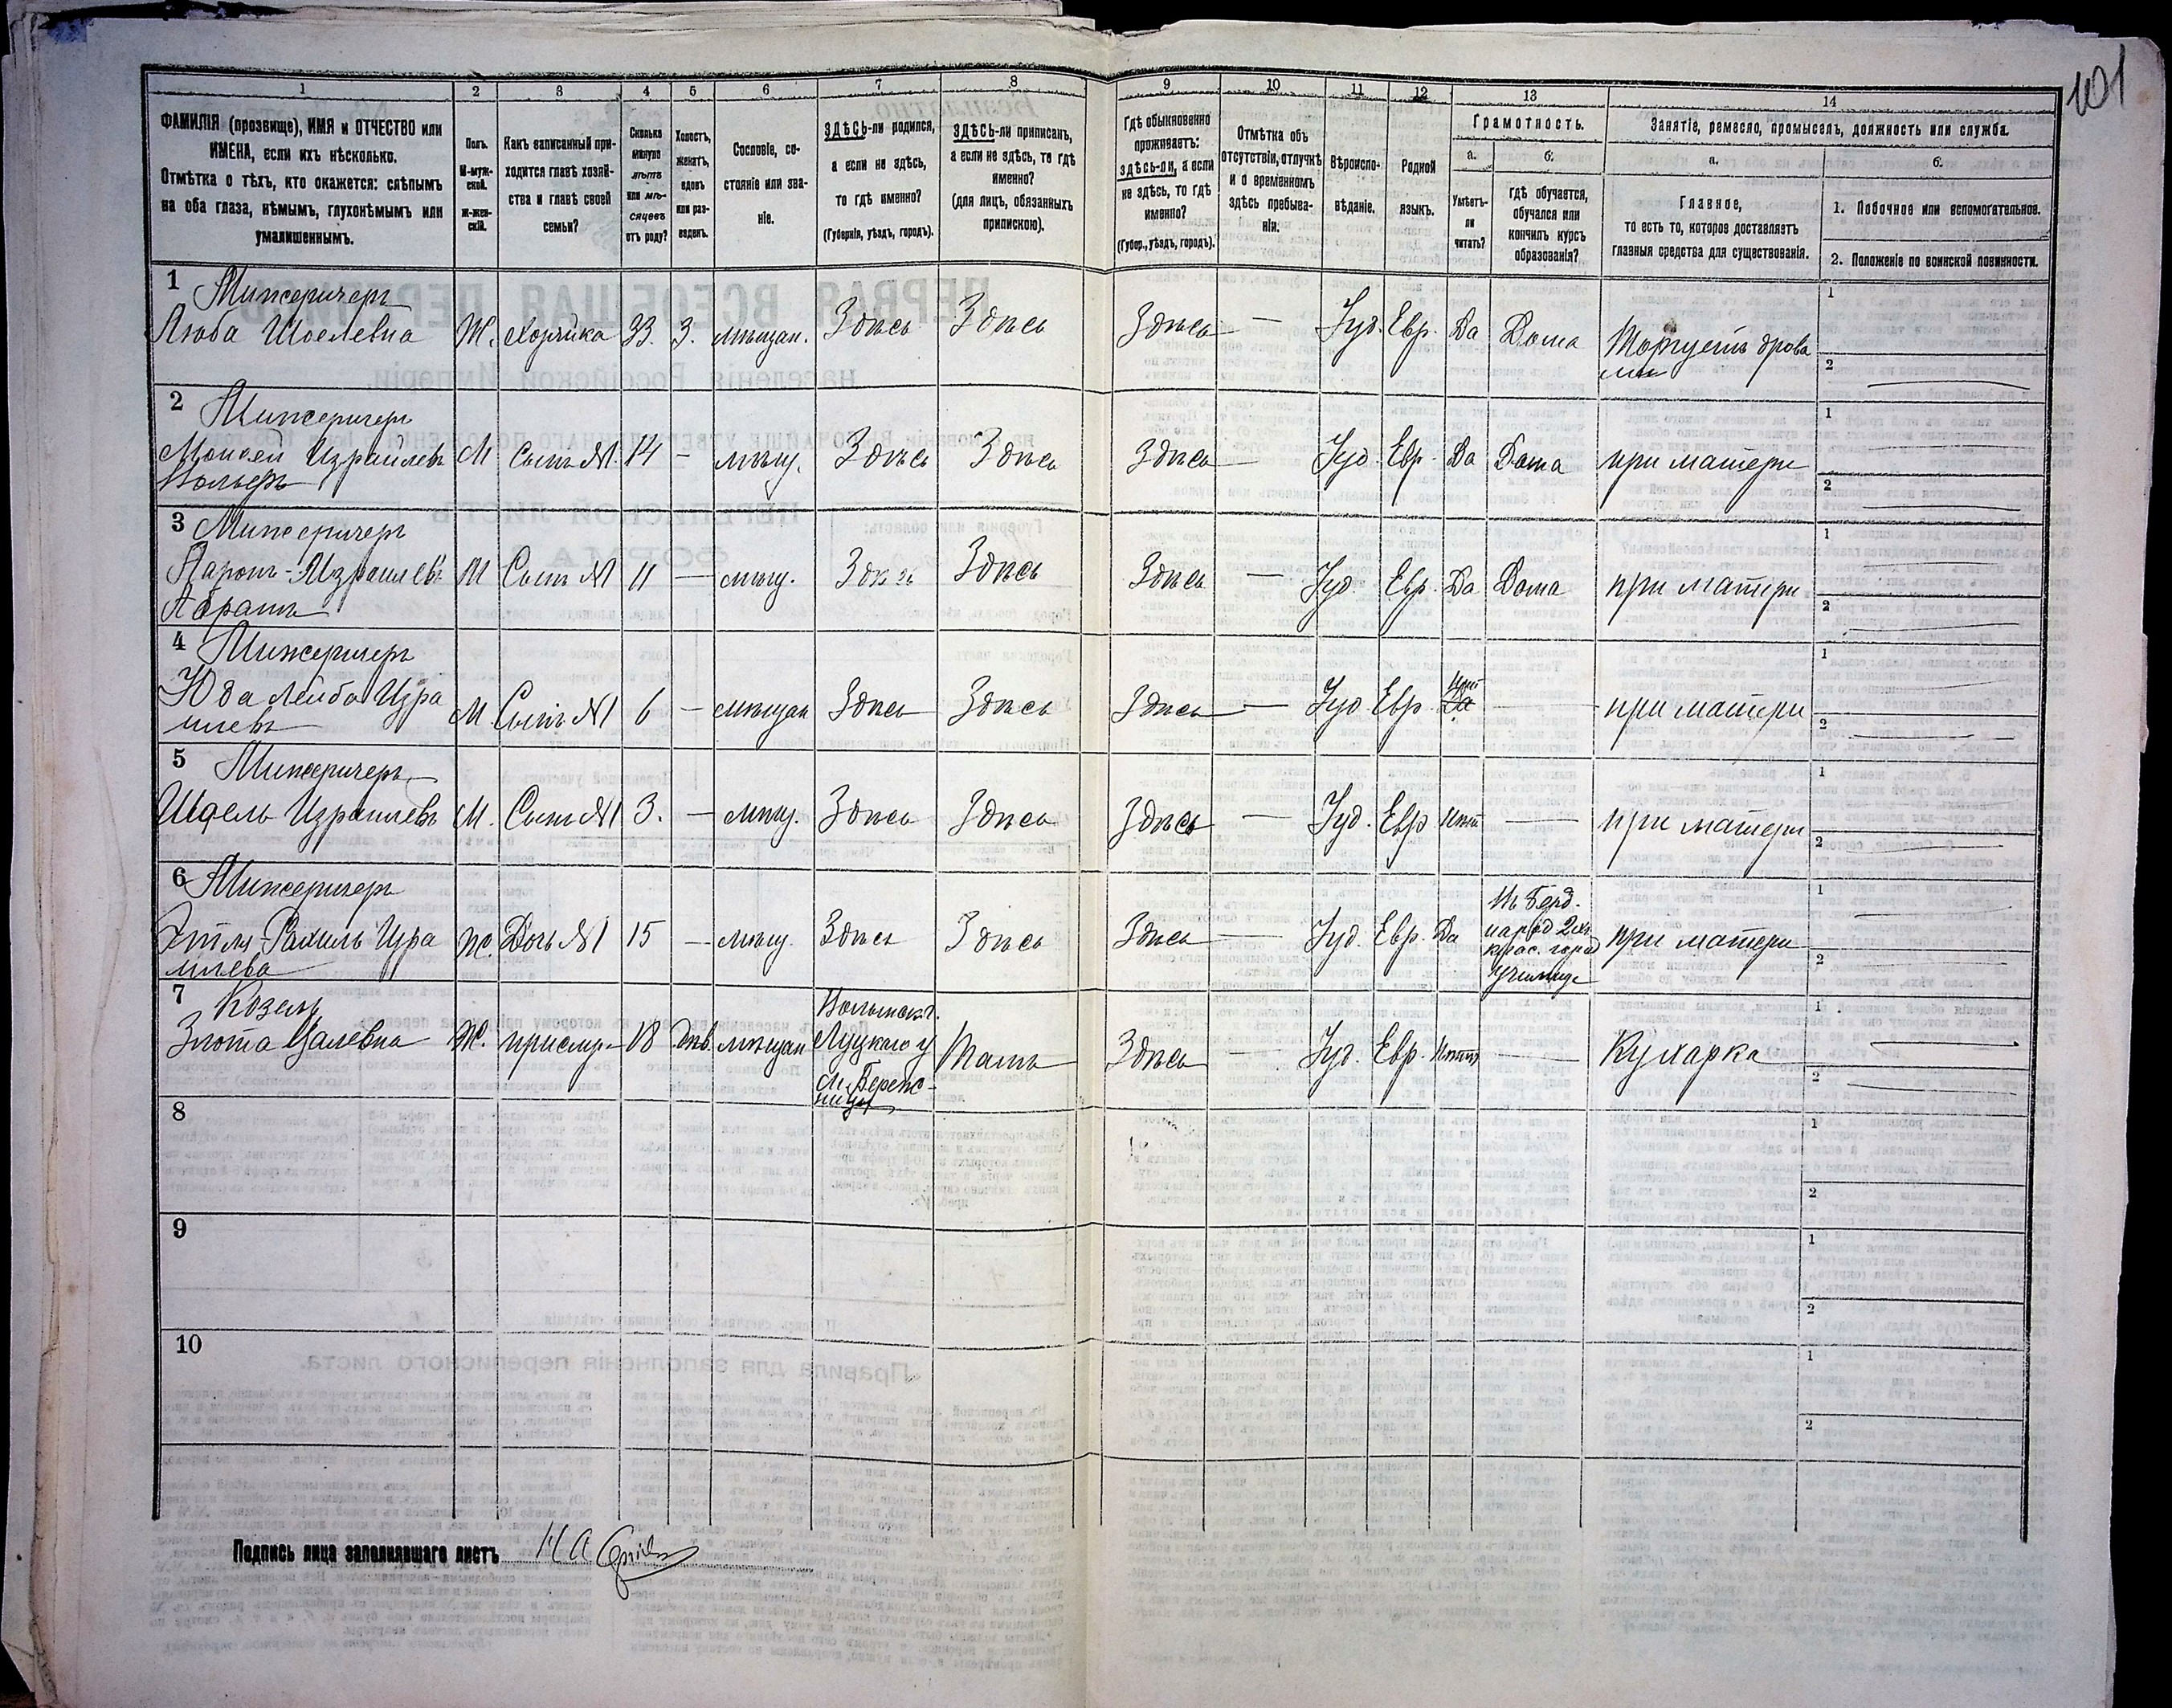 101
1 2 3 4 5 6 7 8 9 10 11 12 13 14
ФАМИЛІЯ (прозвище), ИМЯ и ОТЧЕСТВО или
ИМЕНА, если ихъ нѣсколько.
Отмѣтка о тѣхъ, кто окажется: слѣпымъ
на оба глаза, нѣмымъ, глухонѣмымъ или
умалишеннымъ.
Полъ.
М-муж-
ской.
Ж-жен-
скій.
Какъ записанный при-
ходится главѣ хозяй-
ства и главѣ своей
семьи?
Сколько
минуло
лѣтъ
или мѣ-
сяцевъ
отъ роду?
Холостъ,
женатъ,
вдовъ
или раз-
веденъ.
Сословіе, со-
стояніе или зва-
ніе.
ЗДѢСЬ-ли родился,
а если не здѣсь,
то гдѣ именно?
(Губернія, уѣздъ, городъ).
ЗДѢСЬ-ли приписанъ,
а если не здѣсь, то гдѣ
именно?
(для лицъ, обязанныхъ
припискою).
Гдѣ обыкновенно
проживаетъ:
здѣсь-ли, а если
не здѣсь, то гдѣ
именно?
(Губер., уѣздъ, городъ).
Отмѣтка объ
отсутствіи, отлучкѣ
и о временномъ
здѣсь пребыва-
ніи.
Вѣроиспо-
вѣданіе.
Родной
языкъ.
Грамотность.
а.
Умѣетъ-
ли
читать?
б.
гдѣ обучается,
обучался или
кончилъ курсъ
образованія?
Занятіе, ремесло, промыселъ, должность или служба.
а.
Главное,
то есть то, которое доставляетъ
главныя средства для существованія.
б.
1. Побочное или вспомогательное.
2. Положеніе по воинской повинности.
1 Мижеричеръ
Люба Шоелевна Ж. Хозяйка 33. З. мѣщан. Здѣсь Здѣсь Здѣсь — Іуд. Евр. Да Дома Торгуетъ дрова
ми
1
2
2 Мижеричеръ
Моисей Израилевъ М Сынъ №1 14 - мѣщ. Здѣсь Здѣсь Здѣсь — Іуд. Евр. Да Дома при матери
Вольфъ
1
2
3 Мижеричеръ
Ааронъ-Израилевъ М Сынъ №1 11 — мѣщ. Здѣсь Здѣсь Здѣсь — Іуд. Евр. Да Дома при матери
Абрамъ
1
2
4 Мижеричеръ
Юда Лейба Изра
илевъ М. Сынъ №1 6 - мѣщан Здѣсь Здѣсь Здѣсь — Іуд. Евр. Да Нѣт — при матери
1
2
5 Мижеричеръ
Шоель Израилевъ М. Сынъ №1 3. - мѣщ. Здѣсь Здѣсь Здѣсь — Іуд. Евр Нѣт — при матери
1
2
6 Мижеричеръ
Этля-Рахиль Изра
илева Ж. Дочь №1 15 — мѣщ. Здѣсь Здѣсь Здѣсь — Іуд. Евр. Да
Въ Берд.
народ 2хъ
клас. город
училище
при матери
1
2
7 Козель
Злота Цалевна Ж. прислуг- 18 Дѣв мѣщан
Волынск г.
Луцкаго у
м. Береж-
ницы
Тамъ Здѣсь — Іуд. Евр. Нѣтъ — Кухарка
1
2
8
1
2
9
1
2
10
1
2
Подпись лица заполнявшаго листъ